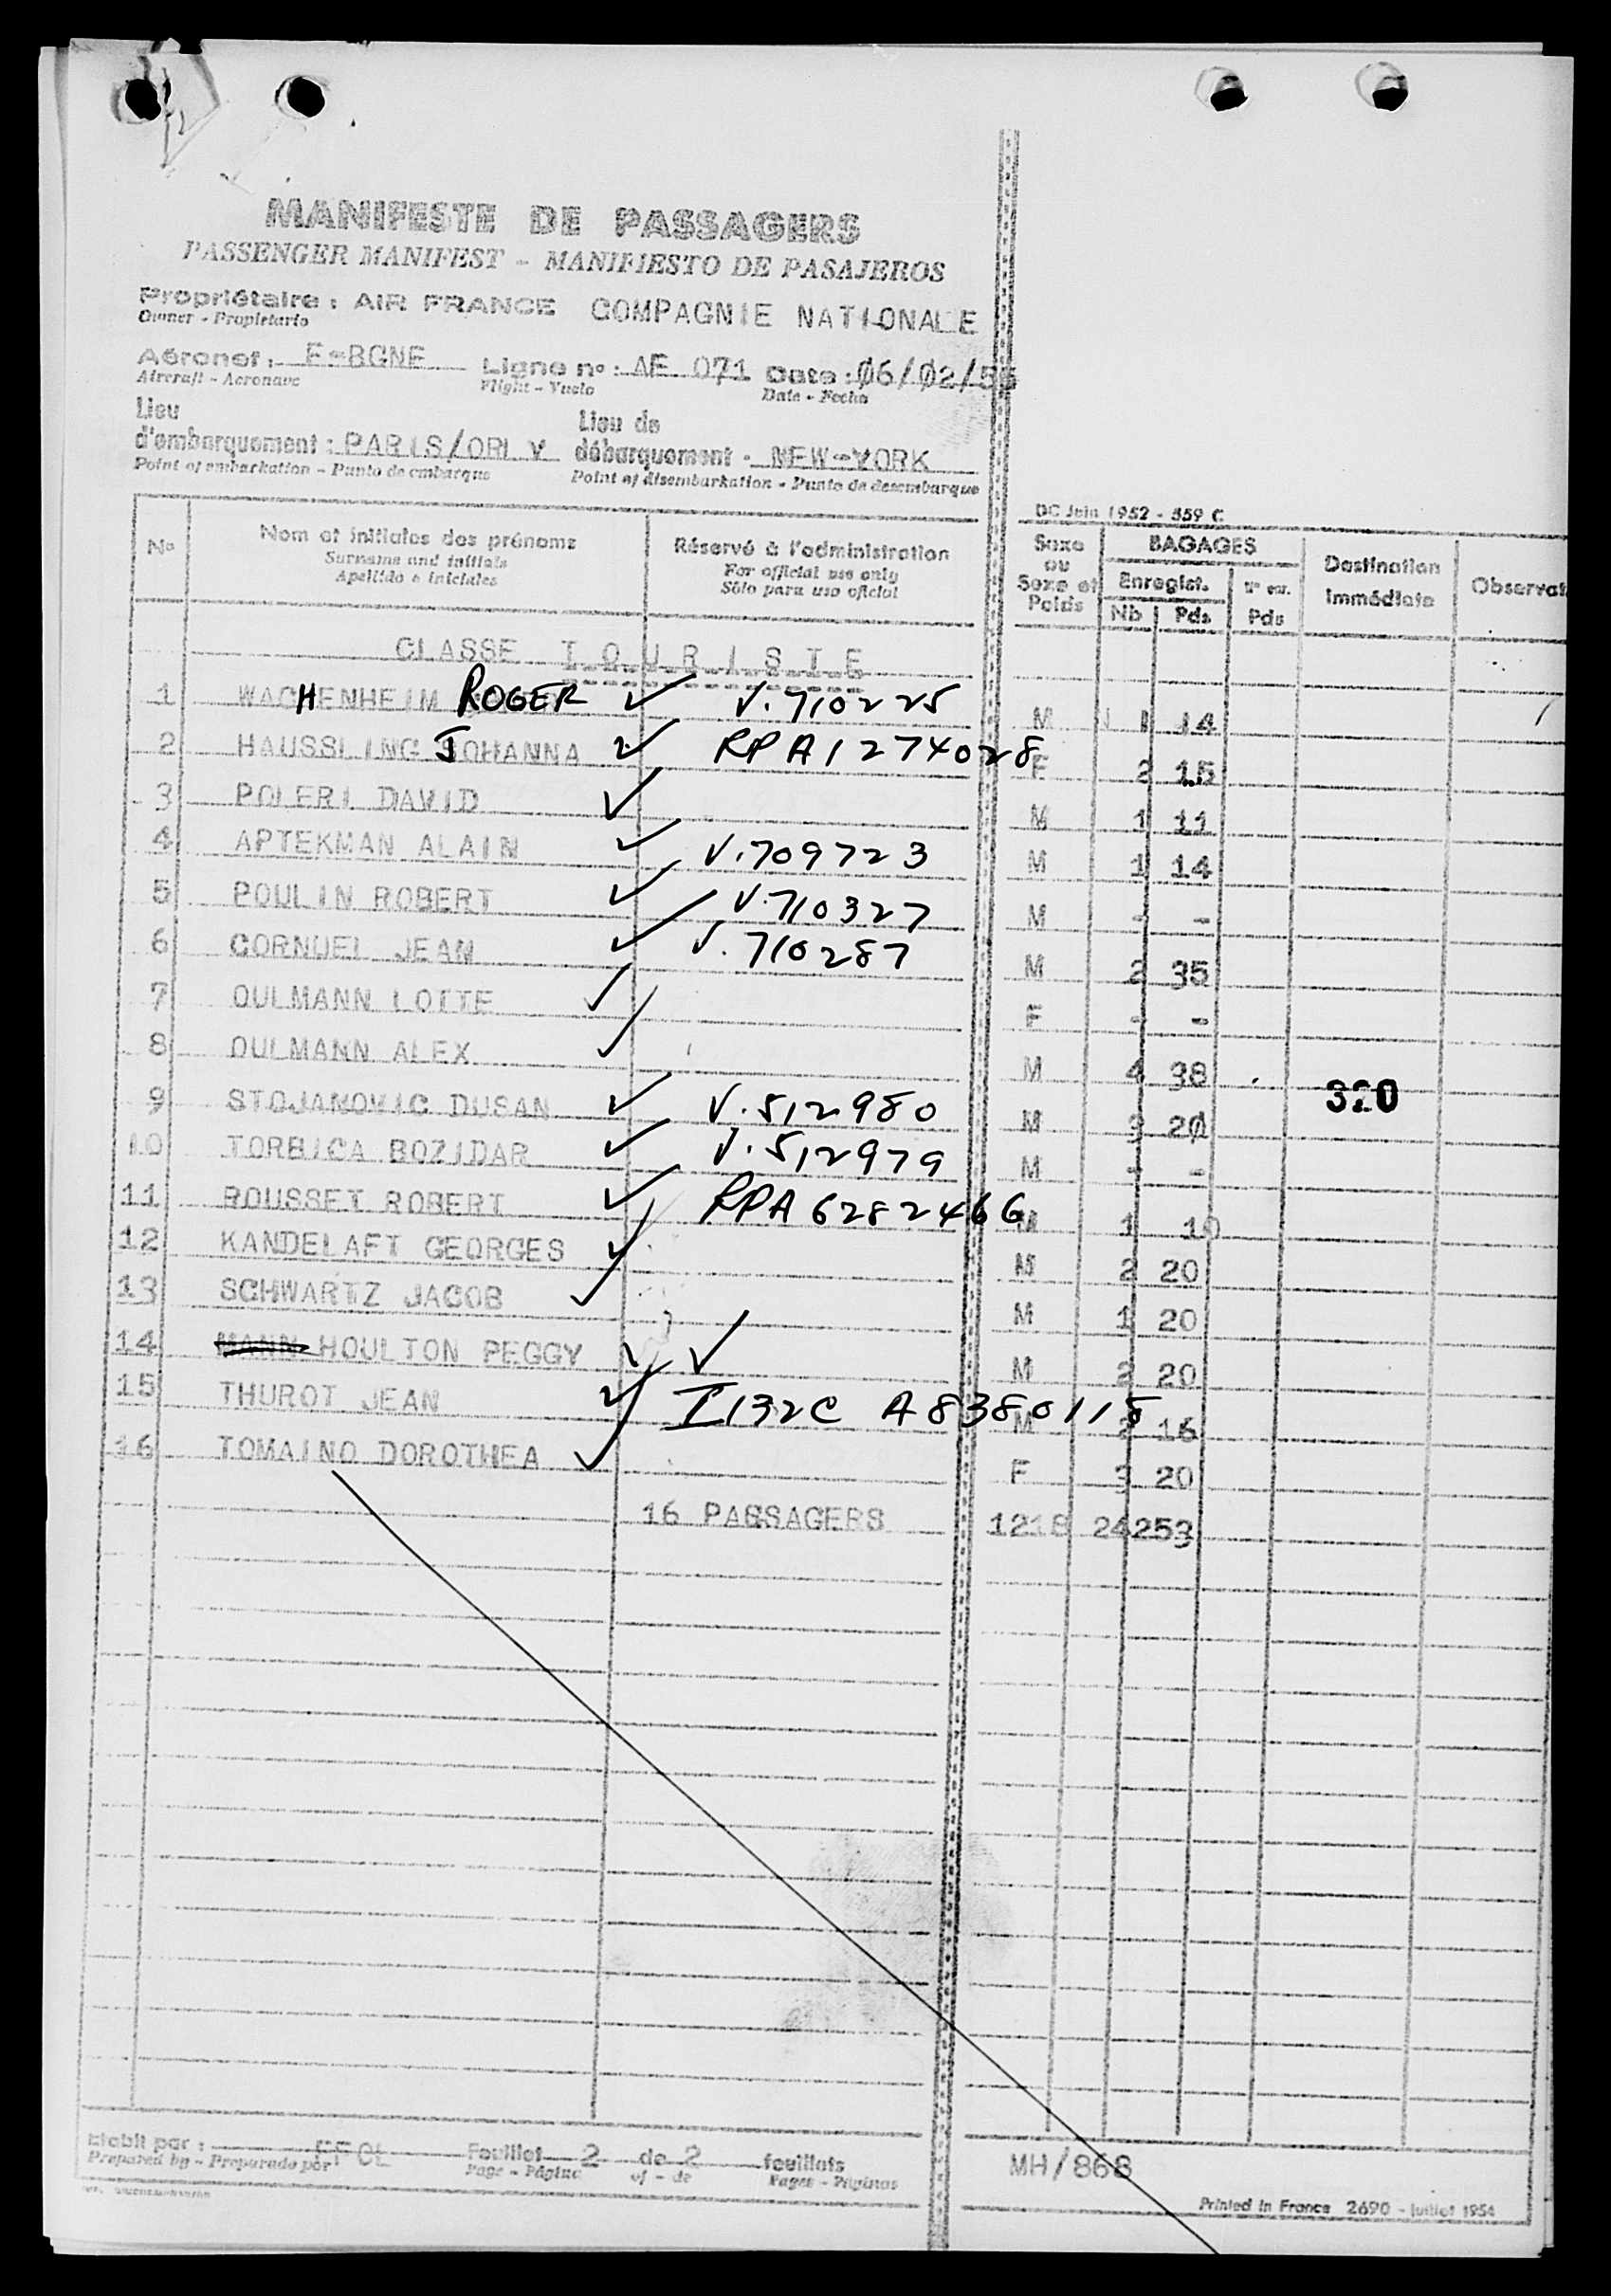 MANIFESTE DE PASSAGERS
PASSENGER MANIFEST - MANIFIESTO DE PASAJEROS
Propriétaire : AIR FRANCE COMPAGNIE NATIONALE
Owner - Propietario
Aéronef : F-BGNE Ligne n° : AF 071 Date : 06/02/55
Aircraft - Aeronave Flight - Vuelo Date - Fecha
Lieu d'embarquement : PARIS/ORLY Lieu de débarquement - NEW-YORK
Point of embarkation - Punto de embarque Point of disembarkation - Punto de desembarque
DC Juin 1952 - 559 C
N° Nom et initiales des prénoms Réservé à l'administration Sexe ou Sexe et Poids BAGAGES Destination Immédiate Observat
Surname and initials For official use only Enregist.
Apellido e iniciales Sólo para uso oficial Nb Pds Pds
CLASSE TOURISTE
1 WACHENHEIM ROGER V.710225 M 1 14
2 HAUSSLING JOHANNA RPA1274028 F 2 15
3 POLERI DAVID M 1 11
4 APTEKMAN ALAIN V.709723 M 1 14
5 POULIN ROBERT V.710327 M - -
6 CORNUEL JEAN V.710287 M 2 35
7 OULMANN LOTTE F - -
8 OULMANN ALEX M 4 38
320
9 STOJANOVIC DUSAN V.512980 M 3 20
10 TORBICA BOZIDAR V.512979 M - -
11 ROUSSET ROBERT RPA6282466 M 1 10
12 KANDELAFT GEORGES M 2 20
13 SCHWARTZ JACOB M 1 20
14 MANN HOULTON PEGGY M 2 20
15 THUROT JEAN I132C A8380118 M 2 16
16 TOMAINO DOROTHEA F 3 20
16 PASSAGERS 1218 24 253
Etabli par : Feuillet 2 de 2 feuillets
Prepared by - Preparado por Page - Página of - de Pages - Páginas
MH/868
Printed in France 2690 - Juillet 1954